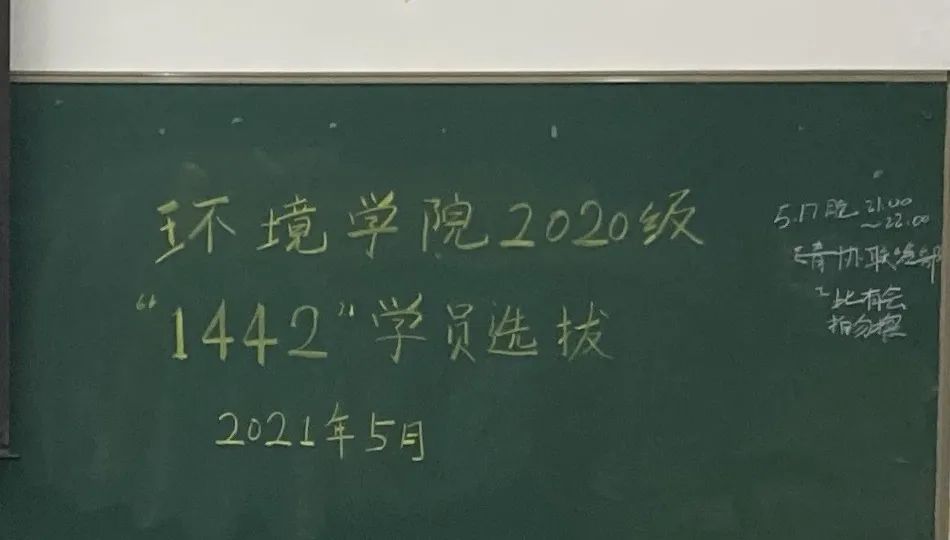 环境学院2020级
“1442”学员选拔
2021年5月
5.17晚 21.00
~22.00
青协联络部
此有会
勿擦